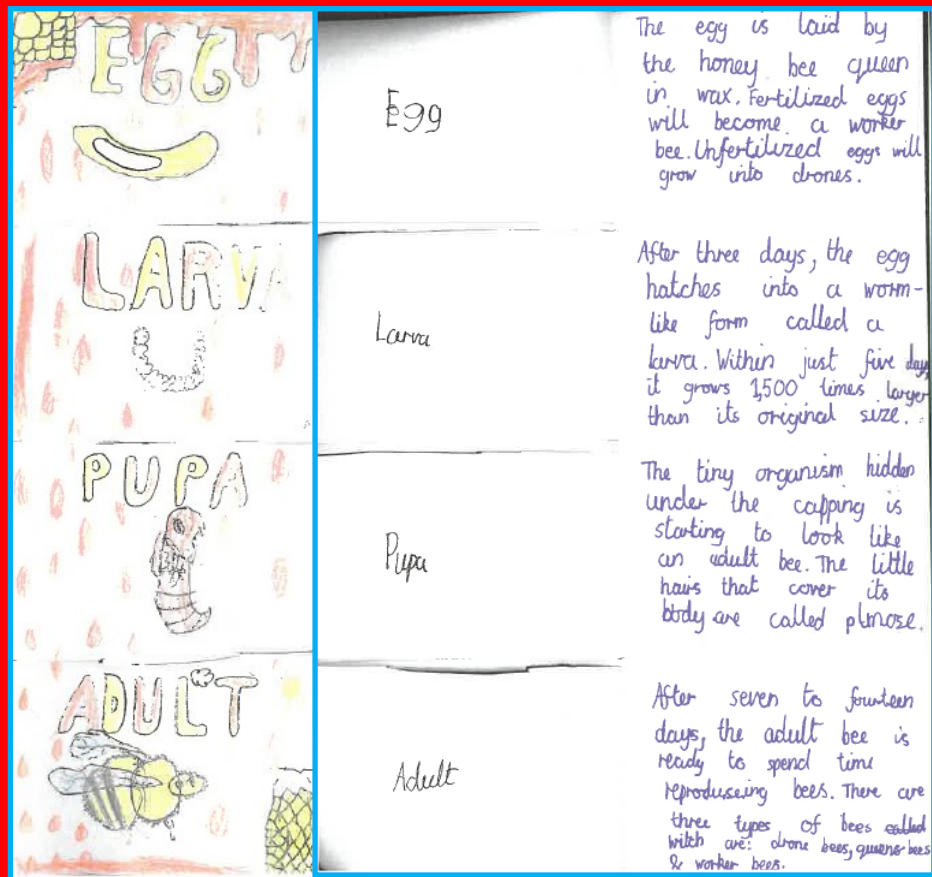 EGG
Egg
The egg is laid by
the honey bee queen
in wax. Fertilized eggs
will become a worker
bee. Unfertilized eggs will
grow into drones.
LARVA
Larva
After three days, the egg
hatches into a worm-
like form called a
larva. Within just five day
it grows 1,500 times larger
than its original size.
PUPA
Pupa
The tiny organism hidden
under the capping is
starting to look like
an adult bee. The little
hairs that cover its
body are called plmose.
ADULT
Adult
After seven to fourteen
days, the adult bee is
ready to spend time
reproduseing bees. There are
three types of bees called
witch are: drone bees, queens bees
& worker bees.